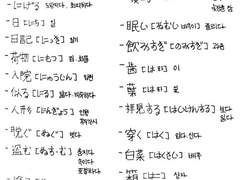 - にげる 도망가다, 회피하다
- 日 [にち] 일
- 日記 [にっき] 일기
- 荷物 [にもつ] 짐, 화물
- 入院 [にゅういん] 입원
- 似る [にる] 닮다, 비슷하다
- 人形 [にんぎょう] 인형
- 脱ぐ [ぬぐ] 벗다
- 盗む [ぬすむ] 훔치다
- 眠い [ねむい] 졸리다
- 飲みすぎ [のみすぎ] 과음
- 歯 [は] 이
- 葉 [は] 잎
- 拝見する [はいけんする]
- 穿く [はく] 입다, 신다
- 白菜 [はくさい] 배추
- 箱 [はこ] 상자